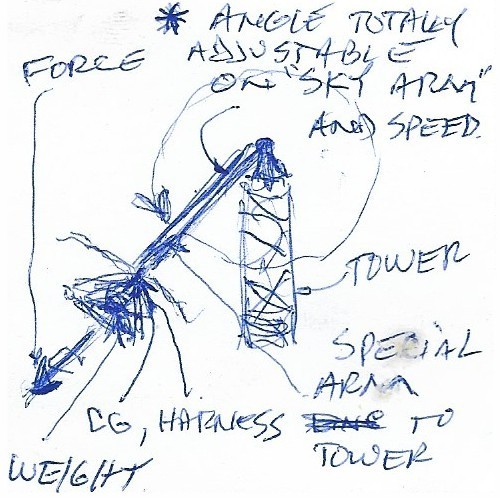 * ANGLE TOTALLY
ADJUSTABLE
ON "SKY ARM"
AND SPEED.
FORCE
TOWER
SPECIAL
ARM
CG, HARNESS TO
TOWER
WEIGHT